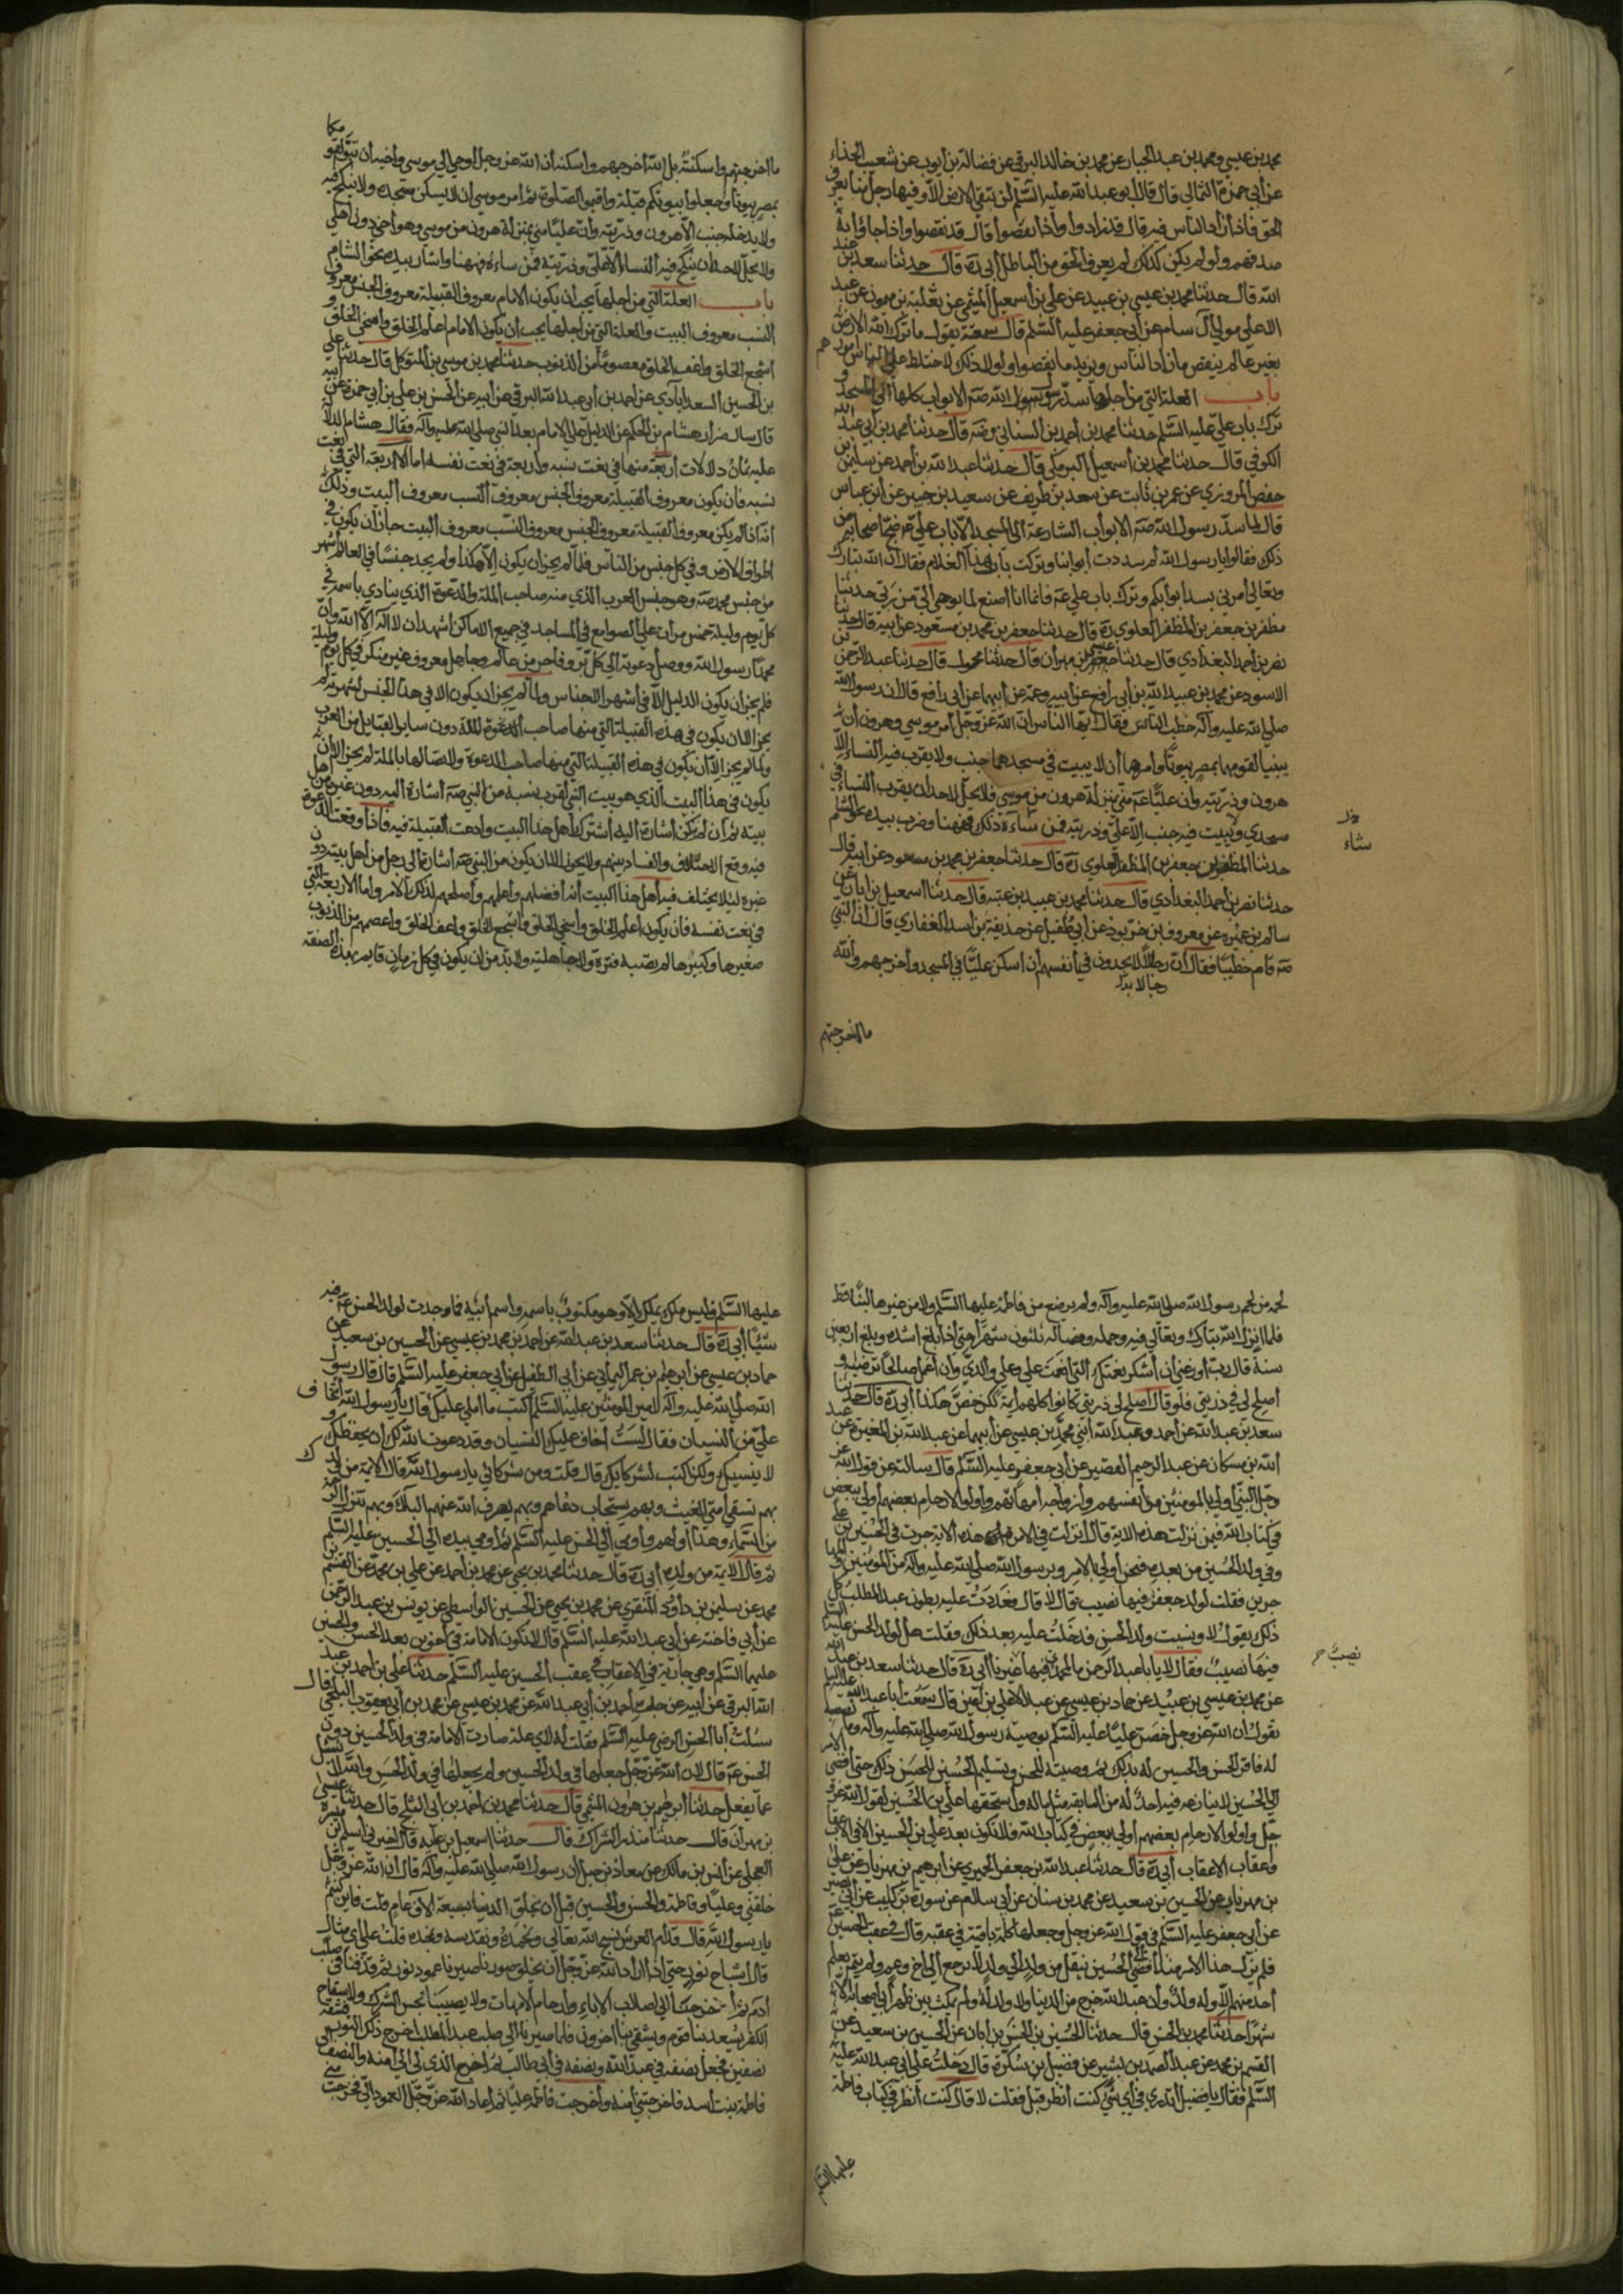 محمد بن عيسي ومحمد بن عبد الجبار عن محمد بن خالد البرقي عن فضالة بن ايوب عن شعيب الحذاء
عن أبي حمزة الثمالي قال قال ابو عبد الله عليه السّلم لن تبقي الارض الّا وفيها رجل منا يعرف
الحق فاذا زاد الناس فيه قال قد زادوا واذا نقصوا قال قد نقصوا واذا جاؤا به
صدقهم ولو لم يكن كذلك لم يعرف الحق من الباطل أبي ره قال حدثنا سعد بن عبد
الله قال حدثنا محمد بن عيسي بن عبيد عن علي بن اسمعيل الميثمي عن ثعلبة بن ميمون عن عبد
الاعلي مولي آل سام عن أبي جعفر عليه السّلم قال سمعته يقول ما ترك الله الارض
بغير عالم ينقص ما زاد الناس ويزيد ما نقصوا ولولا ذلك لاختلط علي الناس امورهم
باب العلة التي من اجلها سدّ رسول الله صه الابواب كلها الي المسجد و
ترك باب علي عليه السّلم حدثنا محمد بن أحمد السناني رضه قال حدثنا محمد بن أبي عبد الله
الكوفي قال حدثنا محمد بن اسمعيل البرمكي قال حدثنا عبد الله بن احمد عن سليمن بن
حفص المروزي عن عمر بن ثابت عن سعد بن طريف عن سعيد بن جبير عن ابن عباس
قال لما سدّ رسول الله صه الابواب الشارعة الي المسجد الّا باب علي ع ضج اصحابه من
ذلك فقالوا يا رسول الله لم سددت أبوابنا وتركت باب هذا الغلام فقال ان الله تبارك
وتعالي أمرني بسد أبوابكم وترك باب علي ع فانما انا اصنع لما يوحي الي من ربي حدثنا
مظفر بن جعفر بن المظفر العلوي ره قال حدثنا جعفر بن محمد بن مسعود عن ابيه قال حدثنا
نصر بن أحمد البغدادي قال حدثنا عيسي بن مهران قال حدثنا محول قال حدثنا عبد الرحمن بن
الاسود عن محمد بن عبيد الله بن ابي رافع عن أبيه وعمه عن أبيهما عن أبي رافع قال ان رسول الله
صلي الله عليه وآله خطب الناس فقال ايها الناس ان الله عزوجل أمر موسي وهرون أن
يبنيا لقومهما بمصر بيوتا وأمرهما أن لا يبيت في مسجدهما جنب ولا يقرب فيه النساء الّا
هرون وذريته وان عليّا ع مني بمنزلة هرون من موسي فلا يحل لاحد ان يقرب النساء في
مسجدي ولا يبيت فيه جنب الّا علي وذريته فمن ساءه ذلك فههنا وضرب بيده نحو الشام
شاء
حدثنا المظفر بن جعفر بن المظفر العلوي ره قال حدثنا جعفر بن محمد بن مسعود عن ابيه قال
حدثنا نصر بن احمد البغدادي قال حدثنا محمد بن عبيد بن عتبه قال حدثنا اسمعيل بن ابان عن
سالم بن عمره عن معروف بن خربوذ عن أبي طفيل عن حذيفة بن اسد الغفاري قال ان النبي
صه قام خطيبا فقال ان رجالا لا يجدون في أنفسهم أن أسكن عليّا في المسجد وأخرجهم والله
ما اخرجتهم
ما اخرجتهم واسكنته بل الله أخرجهم واسكنه ان الله عز وجل أوحي الي موسي واخيه أن تبوّا لقومكما
بمصر بيوتا واجعلوا بيوتكم قبلة واقيموا الصلوة ثم امر موسي ان لا يسكن مسجده ولا ينكح فيه
ولا يدخله جنب الّا هرون وذريته وان عليّا مني بمنزلة هرون من موسي وهو أخي دون أهلي
ولا يحل لاحد ان ينكح فيه النساء الّا علي وذريته فمن ساءه فههنا واشار بيده نحو الشام
باب العلة التي من اجلها يجب ان يكون الامام معروف القبيلة معروف الجنس معروف
النسب معروف البيت والعلة التي من اجلها يجب أن يكون الامام اعلم الخلق واسخي الخلق و
اشجع الخلق واعف الخلق معصوما من الذنوب حدثنا محمد بن موسي بن المتوكل قال حدثنا علي
بن الحسين السعدابادي عن احمد بن أبي عبد الله البرقي عن أبيه عن الحسن بن علي بن أبي حمزة عن أبيه
قال سال ضرار هشام بن الحكم عن الدليل علي الامام بعد النبي صلي الله عليه وآله فقال هشام الدلالة
عليه ثمان دلالات أربعة منها في نعت نسبه واربعة في نعت نفسه اما الاربعة التي في نعت
نسبه فان يكون معروف القبيلة معروف الجنس معروف النسب معروف البيت وذلك
انه اذا لم يكن معروف القبيلة معروف الجنس معروف النسب معروف البيت جاز ان يكون في
اطراف الارض وفي كل جنس من الناس فلما لم يجز ان يكون الّا هكذا ولم يجد جنسا في العالم أشهر
من جنس محمد صه وهو جنس العرب الذي منه صاحب الملة والدعوة الذي ينادي باسمه في
كل يوم وليلة خمس مرات علي الصوامع في المساجد في جميع الاماكن أشهد ان لا اله الّا الله وان
محمدا رسول الله ووصل دعوته الي كل بر وفاجر من عالم وجاهل معروف غير منكر في كل يوم وليلة
فلم يجز أن يكون الدليل الّا في أشهر الاجناس ولما لم يجز ان يكون الا في هذا الجنس لشهرته لم
يجز الا ان يكون في هذه القبيلة التي منها صاحب الدعوة الملة دون ساير القبايل من العرب
ولما لم يجز الّا ان يكون في هذه القبيلة التي منها صاحب الدعوة والاتصالها بالملة لم يجز الا ان
يكون في هذا البيت الذي هو بيت النبي لقرب نسبه من النبي صه اشارة اليه دون غيره من اهل
بيته ثم ان لم يكن اشارة اليه أشترك أهل هذا البيت وادعت القبيلة فيه فاذا وقعت الدعوة
فيه وقع الاختلاف والفساد بينهم ولا يجوز الا ان يكون من النبي صه اشارة الي رجل من اهل بيته دون
غيره ليلا يختلف فيه أهل هذا البيت أنه أفضلهم وأعلمهم وأصلحهم لذلك الامر واما الاربعة التي
في نعت نفسه فان يكون أعلم الخلق واسخي الخلق واشجع الخلق واعف الخلق واعصمهم من الذنوب
صغيرها وكبيرها لم تصبه فترة ولا جاهلية ولا بد من ان يكون في كل زمان قايم بهذه الصفة
لحمه من لحم رسول الله صلي الله عليه وآله ولم يرضع من فاطمة عليها السّلم ولا من غيرها لبنا قط
فلما انزل الله تبارك وتعالي فيه وحمله وفصاله ثلثون شهرا حتي اذا بلغ اشده وبلغ اربعين
سنة قال رب اوزعني ان أشكر نعمتك التي انعمت علي وعلي والدي وان أعمل صالحا ترضيه و
اصلح لي في ذريتي فلو قال أصلح لي ذريتي كانوا كلهم أيمة لكن خص هكذا أبي ره قال حدثنا
سعد بن عبد الله عن احمد وعبد الله ابني محمد بن عيسي عن أبيهما عن عبد الله بن المغيرة عن عبد
الله بن مسكان عن عبد الرحيم القصير عن أبي جعفر عليه السّلم قال سالته عن قول الله عز
وجل النبي أولي بالمومنين من انفسهم وازواجه امهاتهم واولو الارحام بعضهم أولي ببعض
في كتاب الله فيمن نزلت هذه الاية قال أنزلت في الامرة ان هذه الاية جرت في الحسين بن علي
وفي ولد الحسين من بعده فنحن أولي بالامر وبرسول الله صلي الله عليه وآله من المومنين والمها
جرين فقلت لولد جعفر فيها نصيب قال لا قال فعددت عليه بطون عبد المطلب كل
ذلك يقول لا ونسيت ولد الحسن فدخلت عليه بعد ذلك فقلت هل لولد الحسن عليه السّلم
فيها نصيب فقال لا يا با عبد الرحمن ما لمحمدي فيها غيرنا أبي ره قال حدثنا سعد بن عبد الله
نصيب
عن محمد بن عيسي بن عبيد عن حماد بن عيسي عن عبد الاعلي بن اعين قال سمعت أبا عبد الله عليه السّلم
يقول ان الله عز وجل خصّ عليّا عليه السّلم بوصية رسول الله صلي الله عليه وآله وما نصبه
له فاقر الحسن والحسين له بذلك ثم وصيته للحسن وتسليم الحسين للحسن ذلك حتي أفضي الامر
الي الحسين لا ينازعه فيه احد له من السابقة مثل ما له واستحقها علي بن الحسين لقول الله عز و
جل واولو الارحام بعضهم أولي ببعض في كتاب الله فلا تكون بعد علي بن الحسين الّا في الاعقاب
واعقاب الاعقاب أبي ره قال حدثنا عبد الله بن جعفر الحميري عن ابرهيم بن مهزيار عن علي
بن مهزيار عن الحسين بن سعيد عن محمد بن سنان عن أبي سلام عن سورة بن كليب عن أبي بصير
عن أبي جعفر عليه السّلم في قول الله عز وجل وجعلها كلمة باقية في عقبه قال في عقب الحسين ع
فلم يزل هذا الامر منذ أفضي الي الحسين ينتقل من ولد الي ولد لا يرجع الي اخ وعم ولم يتم بعلم
أحد منهم الّا وله ولد وان عبد الله خرج من الدنيا ولا ولد له ولم يمكث بين ظهراني أصحابه الّا
شهرا حدثنا محمد بن الحسن قال حدثنا الحسين بن الحسن بن ابان عن الحسين بن سعيد عن
القسم بن محمد عن عبد الصمد بن بشير عن فضيل بن سكرة قال دخلت علي ابي عبد الله عليه
السّلم فقال يا فضيل اتدري في اي شي كنت أنظر قبل فقلت لا قال كنت أنظر في كتاب فاطمة
عليها السّلم
عليها السّلم فليس ملك يملك الّا وهو مكتوب باسمه واسم أبيه فما وجدت لولد الحسن ع فيه
شيئا أبي ره قال حدثنا سعد بن عبد الله عن احمد بن محمد بن عيسي عن الحسين بن سعيد عن
حماد بن عيسي عن ابرهيم بن عمر اليماني عن أبي الطفيل عن أبي جعفر عليه السّلم قال قال رسول
الله صلي الله عليه وآله لامير المومنين عليه السّلم اكتب ما املي عليك قال يا رسول الله أتخاف
علي من النسيان فقال لست أخاف عليك النسيان وقد دعوت الله لك ان يحفظك و
لا ينسيك ولكن اكتب لشركايك قال قلت ومن شركائي يا رسول الله قال الايمة من ولدك
بهم تسقي امتي الغيث وبهم يستجاب دعاهم وبهم يصرف الله عنهم البلاء وبهم تنزل الرحمة
من السماء وهذا أولهم وأومي الي الحسن عليه السّلم ثم أومي بيده الي الحسين عليه السّلم
ثم قال الايمة من ولده أبي ره قال حدثنا محمد بن يحيي عن محمد بن احمد عن علي بن محمد عن القسم بن
محمد عن سليمن بن داود المنقري عن محمد بن يحيي عن الحسين الواسطي عن يونس بن عبد الرحمن
عن أبي فاخته عن أبي عبد الله عليه السّلم قال لا تكون الامامة في أخوين بعد الحسن والحسين
عليهما السّلم وهي جارية في الاعقاب في عقب الحسين عليه السّلم حدثنا علي بن احمد بن عبد
الله البرقي عن أبيه عن جده احمد بن أبي عبد الله عن محمد بن عيسي عن محمد بن أبي يعقوب البلخي قال
سئلت أبا الحسن الرضي عليه السّلم فقلت له لاي علة صارت الامامة في ولد الحسين دون
الحسن ع قال لان الله عز وجل جعلها في ولد الحسين ولم يجعلها في ولد الحسن والله لا يسئل
عما يفعل حدثنا ابرهيم بن هرون الهيثمي قال حدثنا محمد بن احمد بن أبي الثلج قال حدثنا عيسي
بن مهران قال حدثنا منذر الشراك قال حدثنا اسمعيل بن علية قال أخبرني اسلم بن ميسرة
العجلي عن أنس بن مالك عن معاذ بن جبل ان رسول الله صلي الله عليه وآله قال ان الله عز وجل
خلقني وعليّا وفاطمة والحسن والحسين قبل ان يخلق الدنيا بسبعة الاف عام قلت فاين كنتم
يا رسول الله قال قدام العرش نسبح الله تعالي ونحمده ونقدسه ونمجده قلت علي أي مثال
قال اشباح نور حتي اذا اراد الله عز وجل أن يخلق صورنا صيرنا عمود نور ثم قذفنا في صلب
آدم ثم أخرجنا الي اصلاب الآباء وارحام الامهات ولا يصيبنا نجس الشرك ولا سفاح
الكفر يسعد بنا قوم ويشقي بنا اخرون فلما صيرنا الي صلب عبد المطلب اخرج ذلك النور فشقه
نصفين فجعل نصفه في عبد الله ونصفه في ابي طالب ثم اخرج الذي لي الي امنة والنصف الي
فاطمة بنت أسد فاخرجتني امنة وأخرجت فاطمة عليّا ثم أعاد الله عز وجل العمود الي فخرجت مني